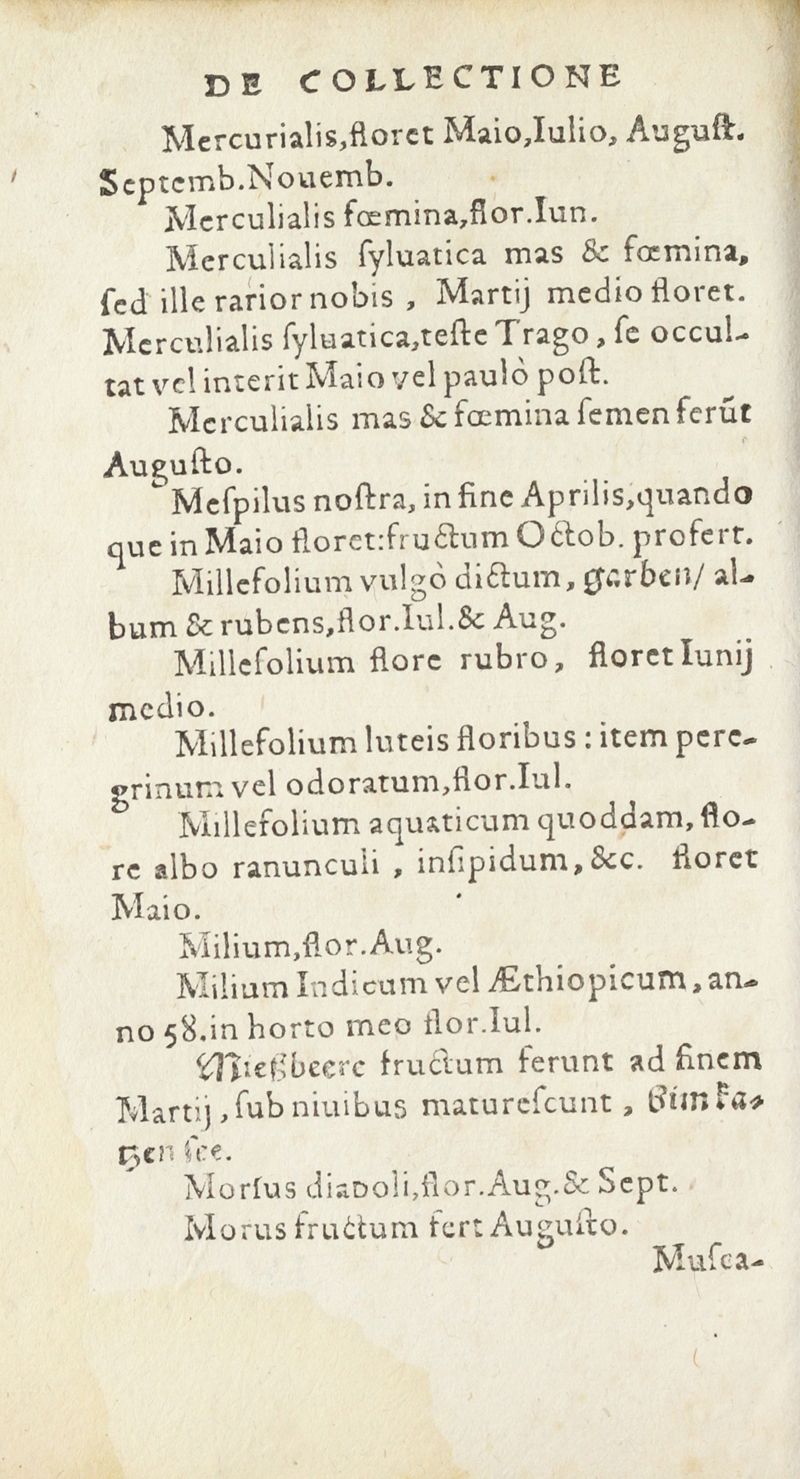 DE COLLECTIONE
Mercurialis,floret Maio,Iulio, Auguſt.
Septemb.Nouemb.
Merculialis fœmina,flor.Iun.
Merculialis ſyluatica mas & fœmina,
ſed ille rarior nobis , Martij medio floret.
Merculialis ſyluatica,teſte Trago , ſe occul-
tat vel interit Maio vel paulò poſt.
Merculialis mas & fœmina ſemen ferūt
Auguſto.
Meſpilus noſtra, in fine Aprilis,quando
que in Maio floret:fructum Octob. profert.
Millefolium vulgò dictum, garben/ al-
bum & rubens,flor.Iul.& Aug.
Millefolium flore rubro, floret Iunij
medio.
Millefolium luteis floribus : item pere-
grinum vel odoratum,flor.Iul.
Millefolium aquaticum quoddam, flo-
re albo ranunculi , inſipidum, &c. floret
Maio.
Milium,flor.Aug.
Milium Indicum vel Æthiopicum, an-
no 58.in horto meo flor.Iul.
Mießbeere fructum ferunt ad finem
Martij , ſub niuibus matureſcunt ,
Morſus diaboli,flor.Aug.& Sept.
Morus fructum fert Auguſto.
Muſca-